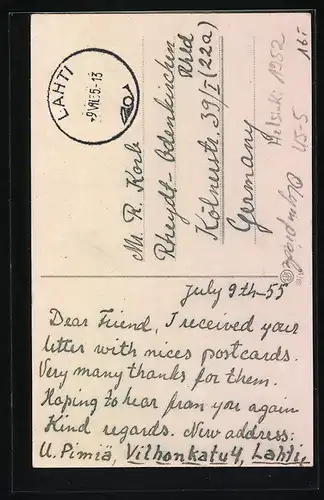 LAHTI
-9.VII.55.-13
Mr. R. Korb
Rheydt-Odenkirchen
Rhld
Kölnerstr. 39/I (22a)
Germany
Helsinki 1952
45-5
16.-
July 9th-55
Dear Friend, I received your
letter with nices postcards.
Very many thanks for them.
Hoping to hear from you again
Kind regards. New address:
U. Pimiä, Vilhonkatu 4, Lahti